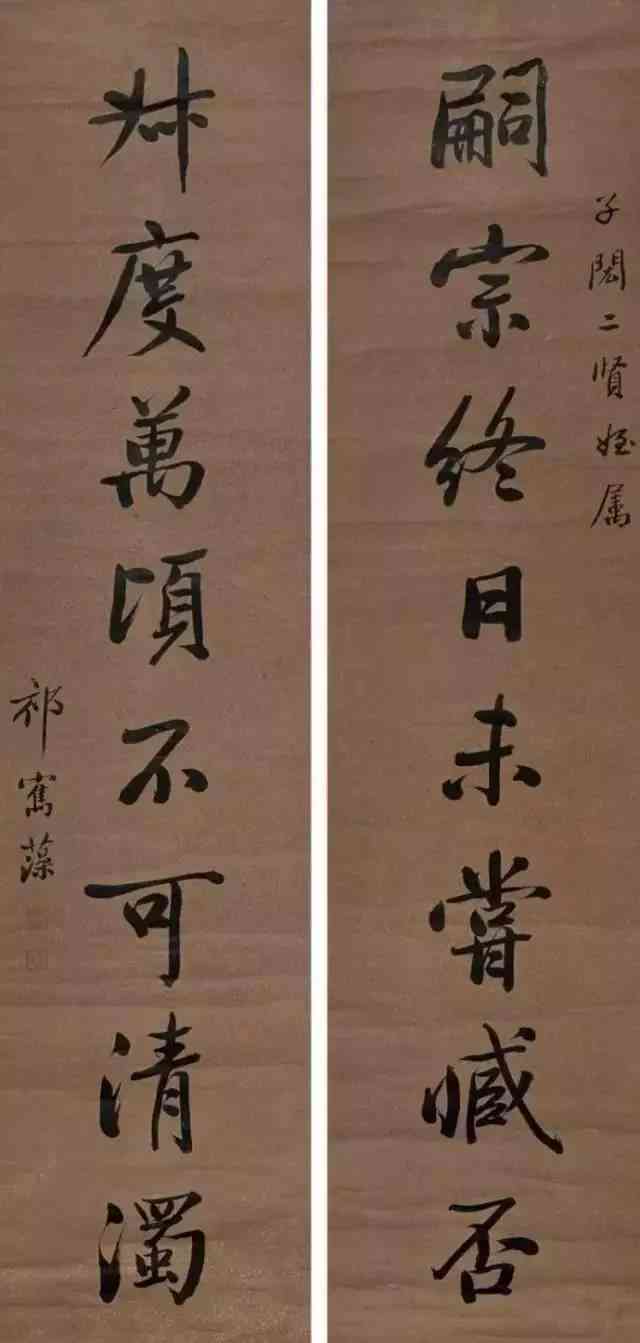 子二賢姪属
嗣宗終日未嘗臧否
叔度萬頃不可清濁
祁寯藻